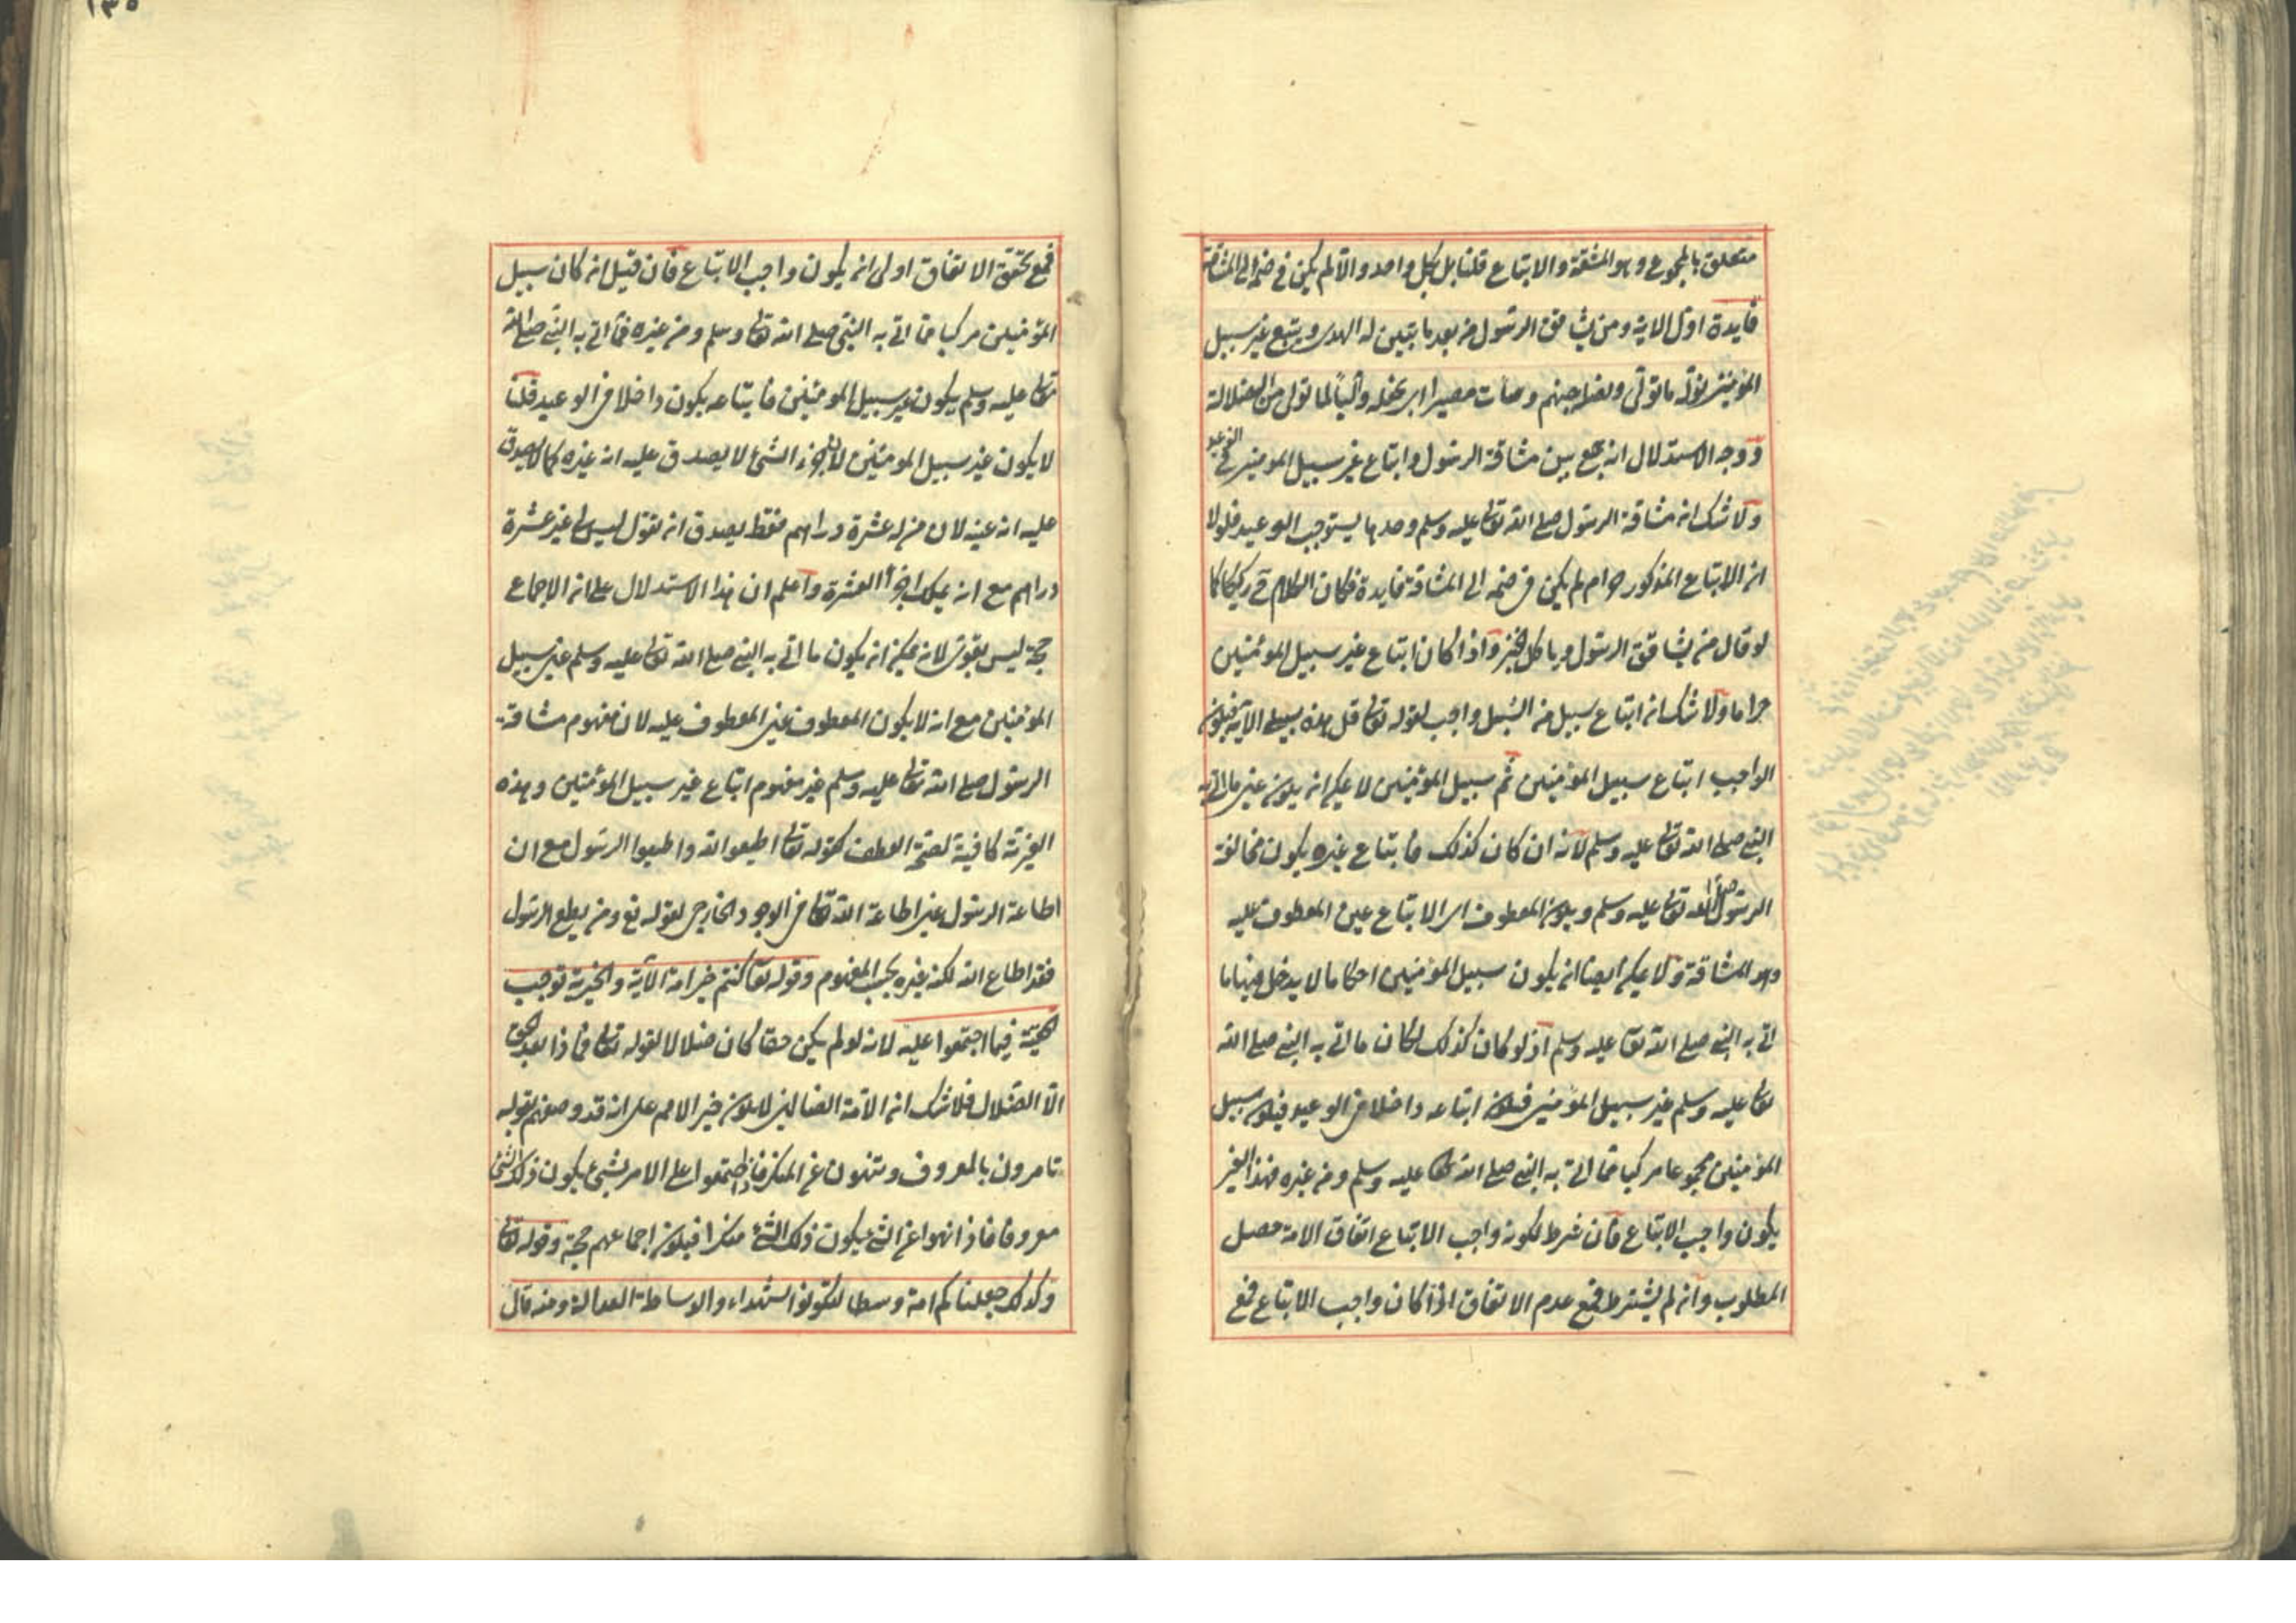 متعلق بالمجموع وهو المشقة والاتباع قلنا بل بكل واحد والا لم يكن في ضمه الى المشاقة
فايدة اول الاية ومن يشاقق الرسول من بعد ما تبين له الهدى ويتبع غير سبيل
المؤمنين نوله ما تولى ونصله جهنم وساءت مصيرا اى نجعله واليا لما تولى من الضلالة
ووجه الاستدلال انه جمع بين مشاقة الرسول واتباع غير سبيل المومنين في الوعيد
ولا شك ان مشاقة الرسول صلى الله تعالى عليه وسلم وحدها يستوجب الوعيد فلولا
ان الاتباع المذكور حرام لم يكن في ضمه الى المشاقة فايدة فكان الكلام ح ركيكا كما
لو قال من يشاقق الرسول وياكل الخبز واذا كان اتباع غير سبيل المومنين
حراما ولا شك ان اتباع سبيل من السبل واجب لقوله تعالى قل هذه سبيلي الاية فيكون
الواجب اتباع سبيل المؤمنين ثم سبيل المؤمنين لا يمكن ان يكون عين ما اتى به
النبي صلى الله تعالى عليه وسلم لانه ان كان كذلك فاتباع غيره يكون مخالفة
الرسول صلى الله تعالى عليه وسلم ويكون المعطوف اى الاتباع عين المعطوف عليه
وهو المشاقة ولا يمكن ايضا ان يكون سبيل المؤمنين احكاما لا يدخل فيها ما
اتى به النبي صلى الله تعا عليه وسلم اذ لو كان كذلك لكان ما اتى به النبي صلى الله
تعالى عليه وسلم غير سبيل المؤمنين فيكون اتباعه داخلا في الوعيد فيكون سبيل
المؤمنين مجموعا مركبا مما اتى به النبي صلى الله تعالى عليه وسلم ومن غيره فهذا الغير
يكون واجب الاتباع فان شرط لكونه واجب الاتباع اتفاق الامة حصل
المطلوب وان لم يشترط فمع عدم الاتفاق اذا كان واجب الاتباع فمع
فمع تحقق الاتفاق اولى ان يكون واجب الاتباع فان قيل ان كان سبيل
المؤمنين مركبا مما اتى به النبي صلى الله تعالى وسلم ومن غيره فما اتى به النبي صلى الله
تعالى عليه وسلم يكون غير سبيل المومنين فاتباعه يكون داخلا في الوعيد قلنا
لا يكون غير سبيل المومنين لان جزء الشئ لا يصدق عليه انه غيره كما لا يصدق
عليه انه عينه لان من له عشرة دراهم فقط يصدق ان يقول ليس لى غير عشرة
دراهم مع انه يملك اجزاء العشرة واعلم ان هذا الاستدلال على ان الاجماع
حجة ليس بقوى لانه يمكن ان يكون ما اتى به النبي صلى الله تعالى عليه وسلم عين سبيل
المؤمنين مع انه لا يكون المعطوف عين المعطوف عليه لان مفهوم مشاقة
الرسول صلى الله تعالى عليه وسلم غير مفهوم اتباع غير سبيل المؤمنين وهذه
الغيرية كافية لصحة العطف كقوله تعالى اطيعوا الله واطيعوا الرسول مع ان
اطاعة الرسول عين اطاعة الله تعالى في الوجود الخارجى لقوله تع ومن يطع الرسول
فقد اطاع الله لكنه غيره بحسب المفهوم وقوله تعا كنتم خير امة الآية والخيرية توجب
الحقية فيما اجتمعوا عليه لانه لو لم يكن حقا كان ضلالا لقوله تعالى فماذا بعد الحق
الا الضلال فلا شك ان الامة الضالين لا يكون خير الامم على انه قد وصفهم بقوله
تامرون بالمعروف وتنهون عن المنكر فاذا اجتمعوا على الامر بشئ يكون ذلك الشئ
معروفا فاذا نهوا عن الشئ يكون ذلك الشئ منكرا فيكون اجماعهم حجة وقوله تعالى
وكذلك جعلناكم امة وسطا لتكونوا شهداء والوساطة العدالة ومنه قال